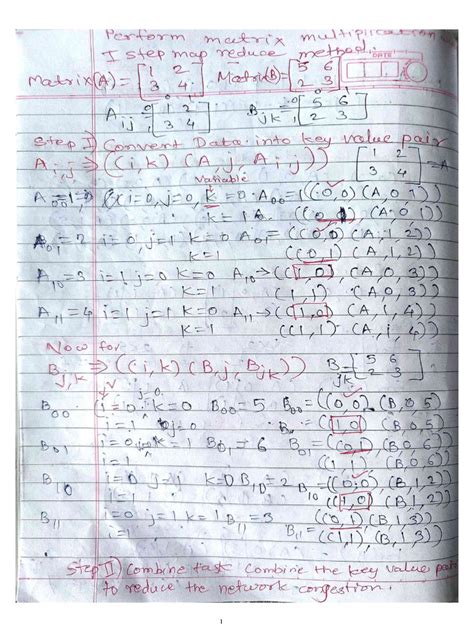 Perform matrix multiplication
I step map reduce method.
Matrix(A) = [1 2 Matrix(B) = [5 6 DATE
3 4] 2 3]
A i,j = 0 [1 2 B j,k = 0 [5 6
1 3 4] 1 2 3]
Step I) Convert Data into key value pair
A i,j ⇒ ((i,k) (A, j, A i,j)) [1 2
3 4] = A
variable
A00 = 1 ⇒ (i=0, j=0, k=0 A00 = ((0,0) (A,0,1))
k=1 ((0,1) (A,0,1))
A01 = 2 i=0, j=1 k=0 A01 = ((0,0) (A,1,2))
k=1 ((0,1) (A,1,2))
A10 = 3 i=1 j=0 k=0 A10 → ((1,0) (A,0,3))
k=1 ((1,1) (A,0,3))
A11 = 4 i=1 j=1 k=0 A11 → ((1,0) (A,1,4))
k=1 ((1,1) (A,1,4))
Now for
B j,k ⇒ ((i,k) (B, j, B jk)) B jk = [5 6
2 3]
j=0
B00 i=0 k=0 B00=5 B00 = ((0,0) (B,0,5)
i=1 j=0 ((1,0) (B,0,5)
B01 i=0 j=0 k=1 B01 = 6 B01 = ((0,1) (B,0,6))
i=1 ((1,1) (B,0,6))
B10 i=0 j=1 k=0 B10=2 B10 = ((0,0) (B,1,2))
i=1 ((1,0) (B,1,2))
B11 i=0 j=1 k=1 B11 = 3 B11 = ((0,1) (B,1,3))
i=1 ((1,1), (B,1,3))
Step II) Combine task Combine the key value pair
to reduce the network congestion.
1